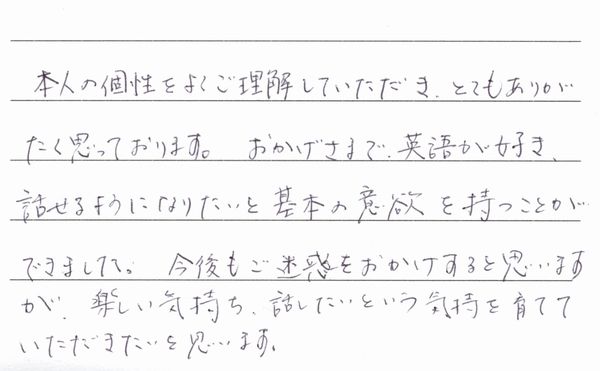 本人の個性をよくご理解していただき、とてもありが
たく思っております。 おかげさまで、英語が好き、
話せるようになりたいと基本の意欲を持つことが
できました。 今後もご迷惑をおかけすると思います
が、楽しい気持ち、話したいという気持を育てて
いただきたいと思います。